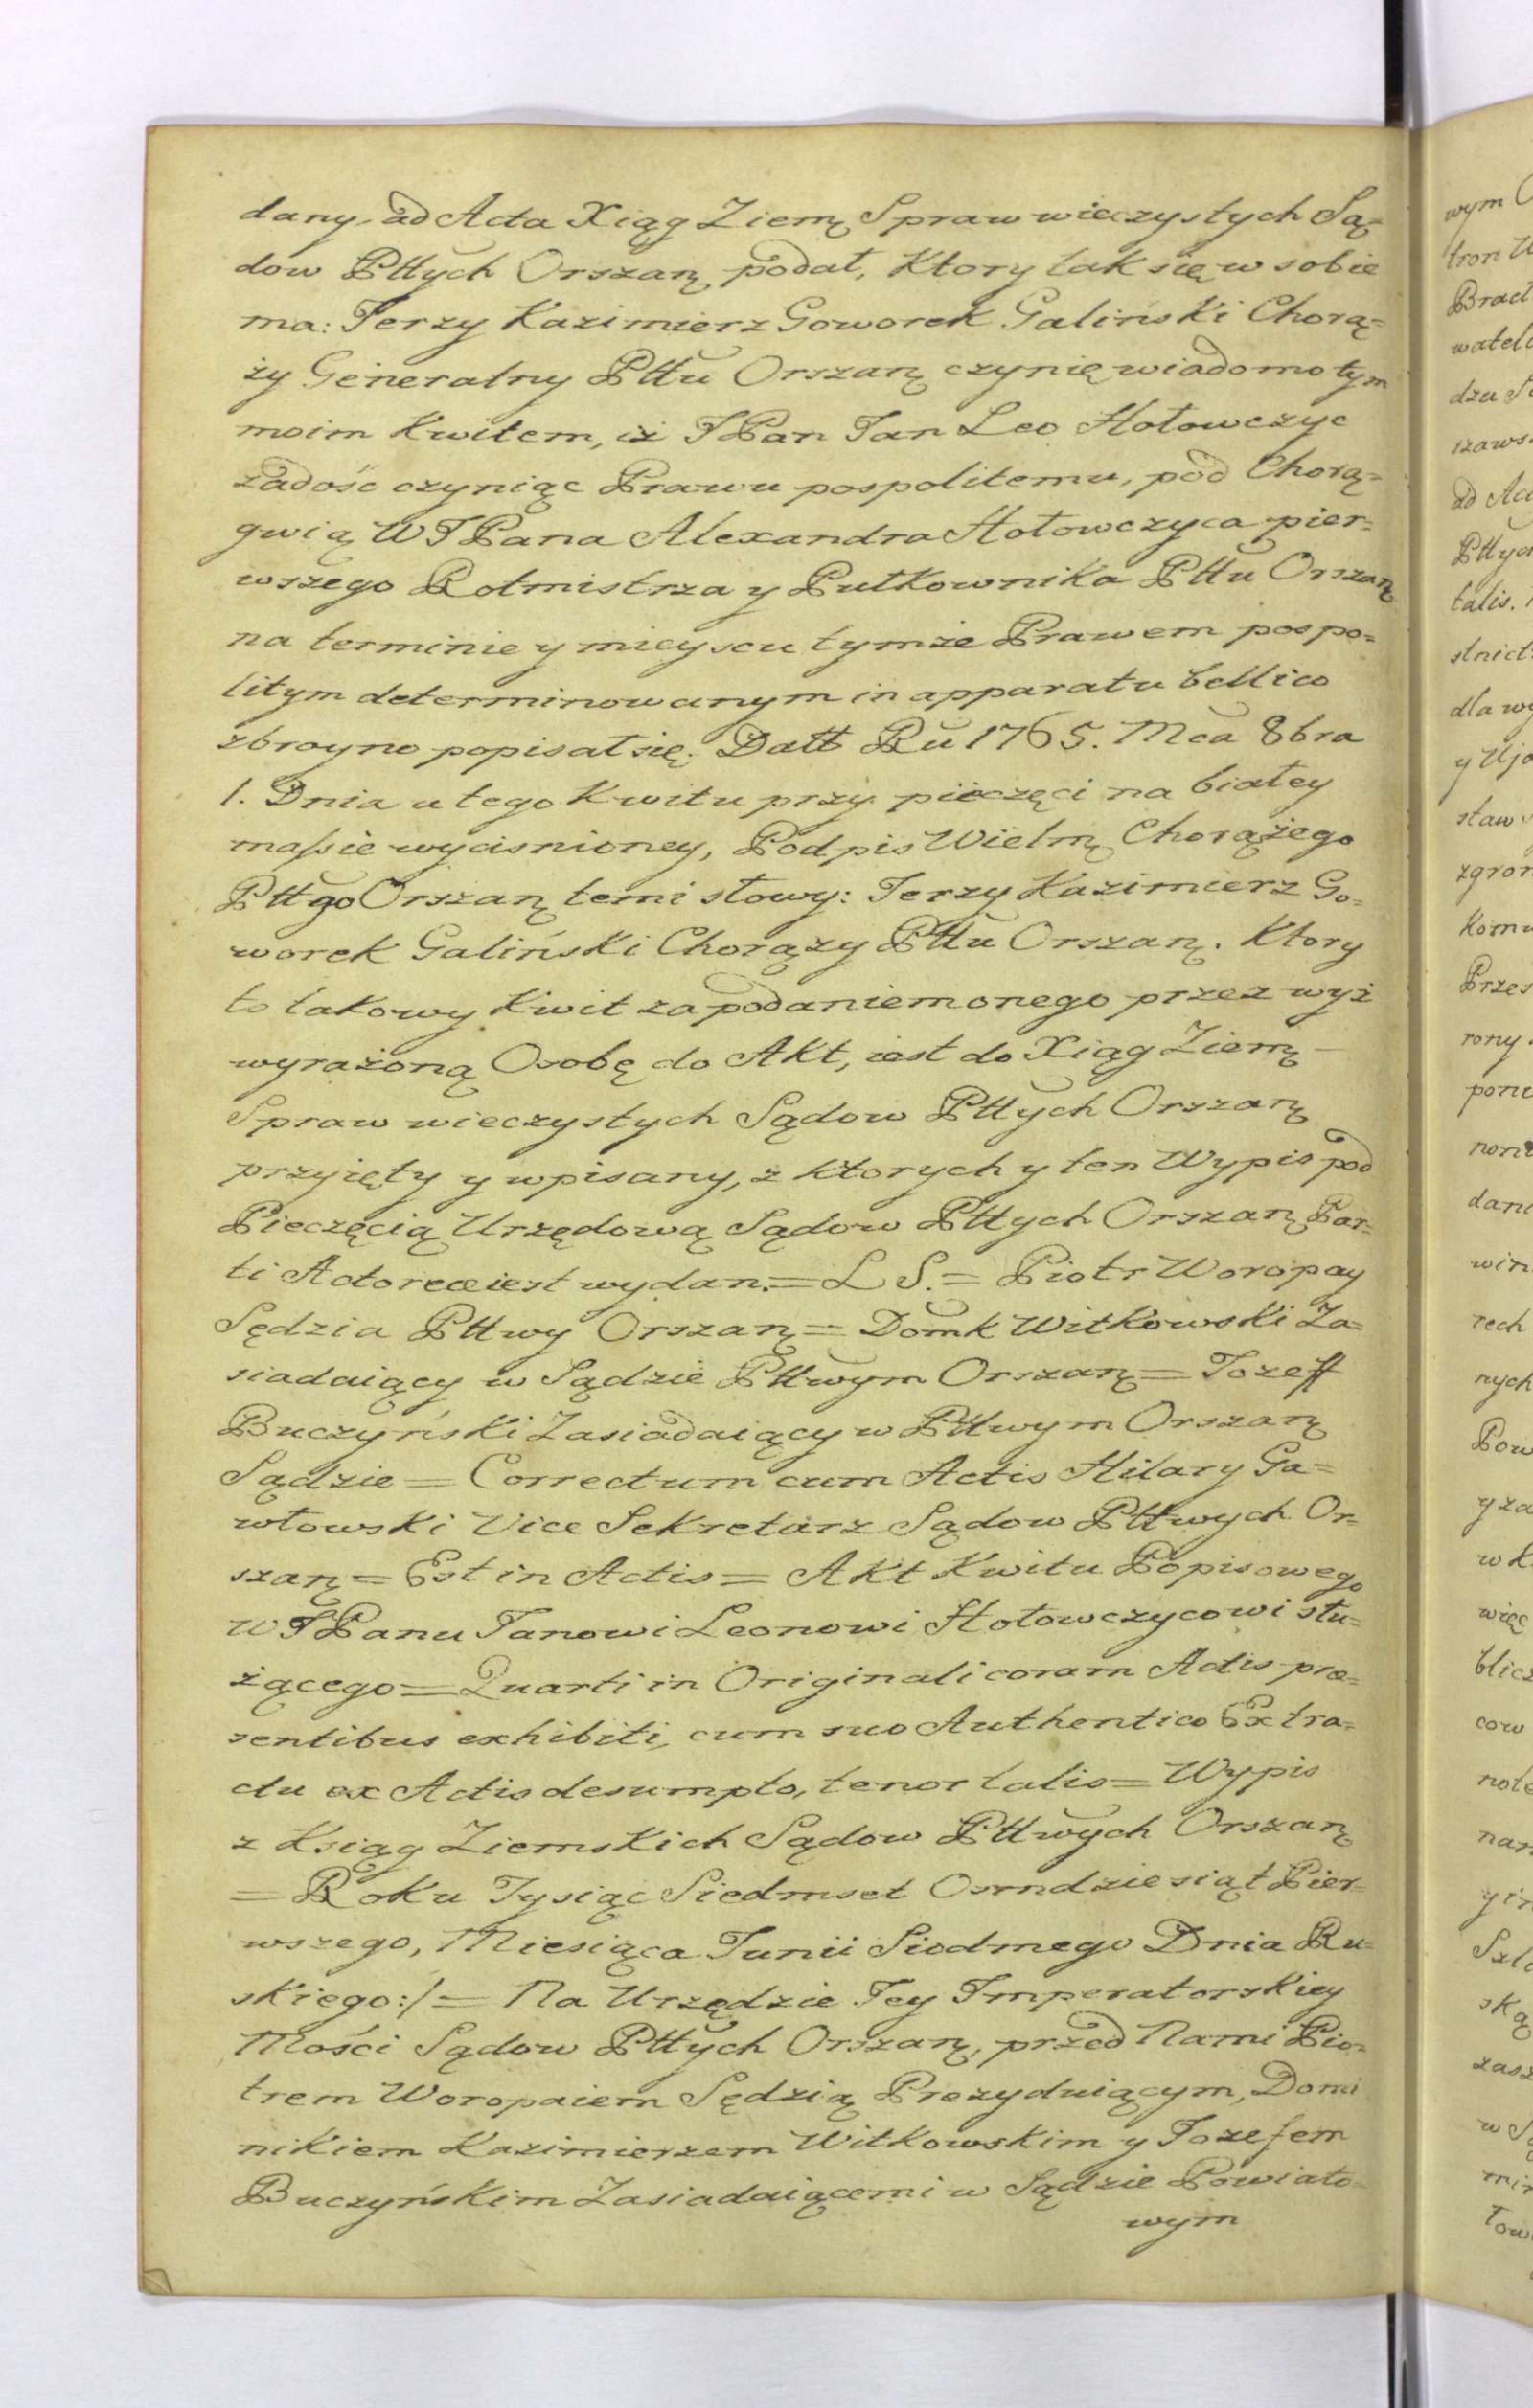 dany, ad Acta Xiąg Ziemą Spraw wieczystych Są=
dow Pttych Orszaną podał, Ktory tak się w sobie
ma: Jerzy Kazimierz Goworek Galinski Chorą=
ży Generalny Pttu Orszaną czynię wiadomo tym
moim Kwitem, iż JPan Jan Leo Hołowczyc
zadość czyniąc Prawu pospolitemu, pod Chorą=
gwią WJPana Alexandra Hołowczyca pier=
wszego Rotmistrza y Pułkownika Pttu Orszaną
na terminie y mieyscu tymże Prawem pospo=
litym determinowanym in apparatu bellico
zbroyno popisał się. Datt Ru 1765. Mca 8bra
1. Dnia u tego Kwitu przy pieczęci na białey
massie wycisnioney, Podpis Wielmą Chorążego
Pttgo Orszaną temi słowy: Jerzy Kazimierz Go=
worek Galiński Chorąży Pttu Orszaną. Ktory
to takowy Kwit za podaniem onego przez wyż
wyrażoną Osobę do Akt, iest do Xiąg Ziemą
Spraw wieczystych Sądow Pttych Orszaną
przyięty y wpisany, z Ktorych y ten Wypis pod
Pieczęcią Urzędową Sądow Pttych Orszaną Par=
ti Actoreæ iest wydan.= L S.= Piotr Woropay
Sędzia Pttwy Orszaną = Domk Witkowski Za=
siadaiący w Sądzie Pttwym Orszaną = Jozeff
Buczyński Zasiadaiący w Pttwym Orszaną
Sądzie = Correctum cum Actis Hilary Ga=
włowski Vice Sekretarz Sądow Pttwych Or=
szaną = Est in Actis = Akt Kwitu Popisowego
WJPanu Janowi Leonowi Hołowczycowi słu=
żącego = Quarti in Originali coram Actis præ=
sentibus exhibiti, cum suo Authentico Extra=
ctu ex Actis desumpto, tenor talis = Wypis
z Ksiąg Ziemskich Sądow Pttwych Orszaną
= Roku Tysiąc Siedmset Osmdziesiąt Pier=
wszego, Miesiąca Junii Siodmego Dnia Ru=
skiego:/= Na Urzędzie Jey Imperatorskiey
Mości Sądow Pttych Orszaną, przed Nami Pio=
trem Woropaiem Sędzią Prezyduiącym, Domi
nikiem Kazimierzem Witkowskim y Jozefem
Buczyńskim Zasiadaiącemi w Sądzie Powiato=
wym